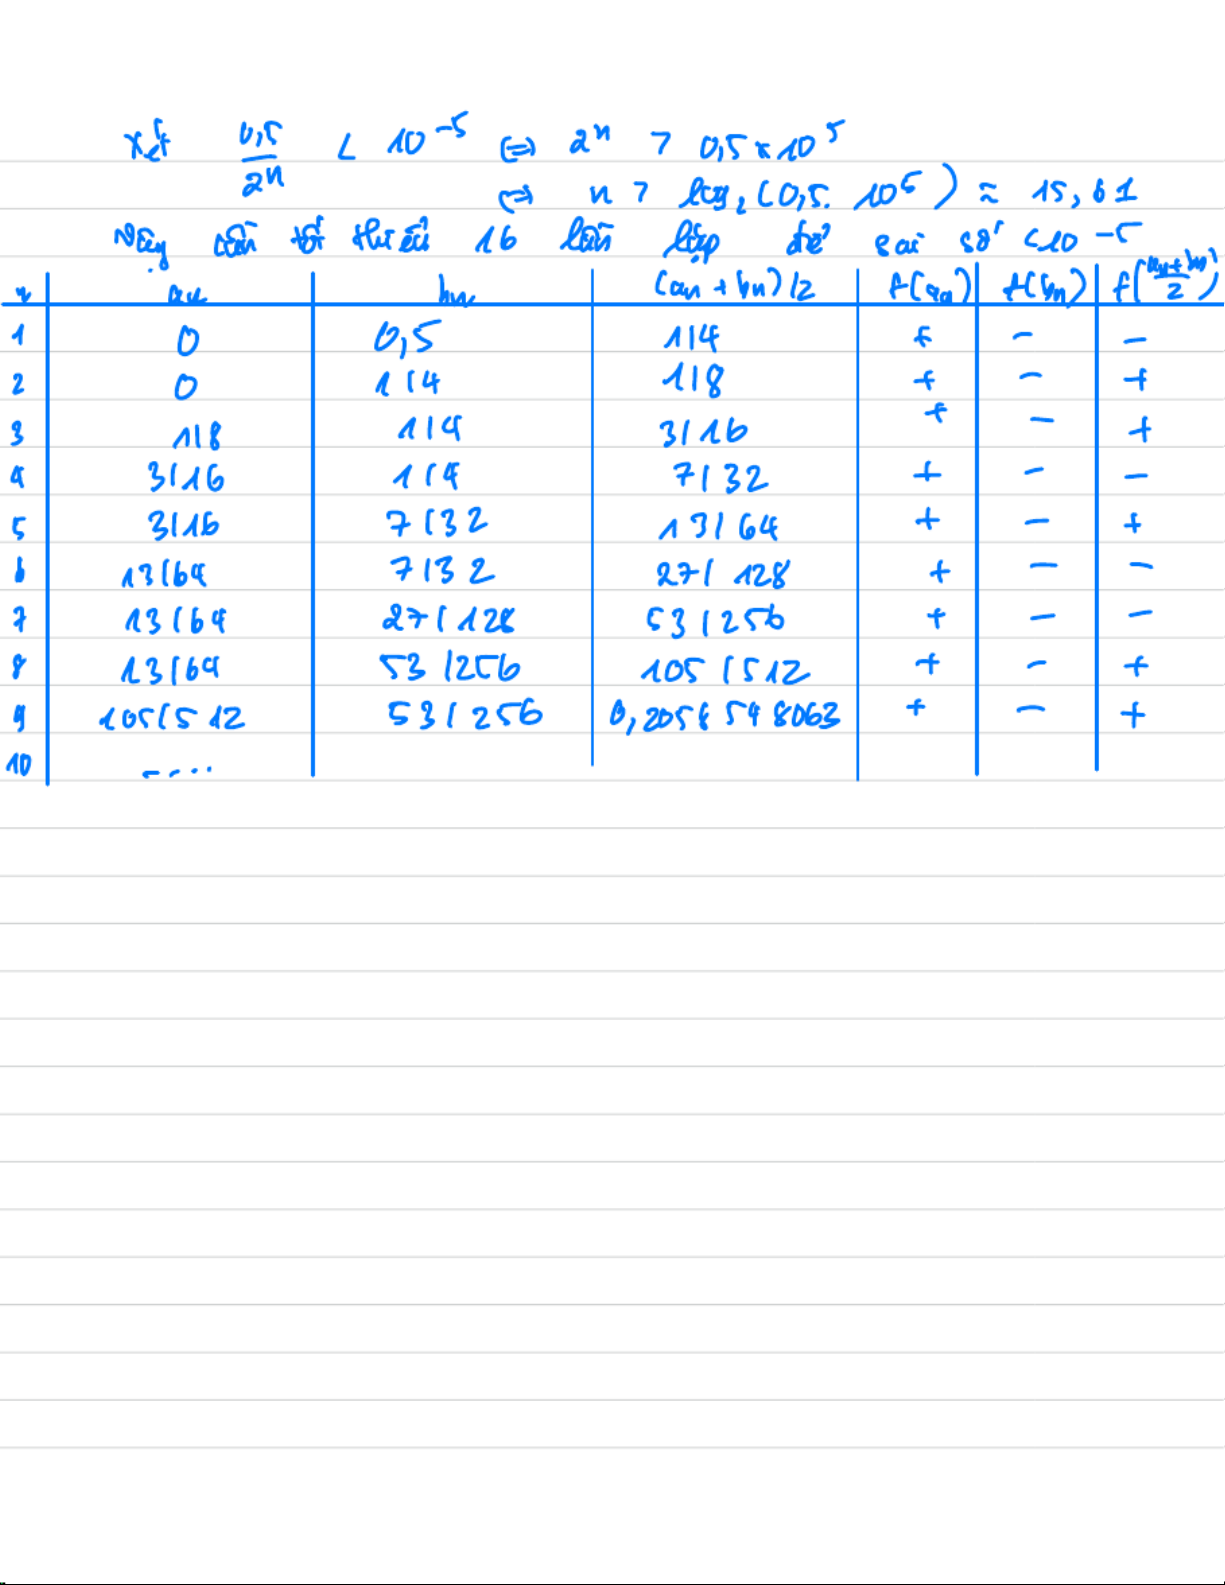 Xét 0,5/2^n < 10^-5 ⇔ 2^n > 0,5 × 10^5
⇔ n > log_2 (0,5. 10^5) ≈ 15,61
Vậy cần tối thiểu 16 lần lặp để sai số < 10^-5
n | an | bn | (an + bn)/2 | f(an) | f(bn) | f((an+bn)/2)
1 | 0 | 0,5 | 1/4 | + | - | -
2 | 0 | 1/4 | 1/8 | + | - | +
3 | 1/8 | 1/4 | 3/16 | + | - | +
4 | 3/16 | 1/4 | 7/32 | + | - | -
5 | 3/16 | 7/32 | 13/64 | + | - | +
6 | 13/64 | 7/32 | 27/128 | + | - | -
7 | 13/64 | 27/128 | 53/256 | + | - | -
8 | 13/64 | 53/256 | 105/512 | + | - | +
9 | 105/512 | 53/256 | + | - | +
10 | ....